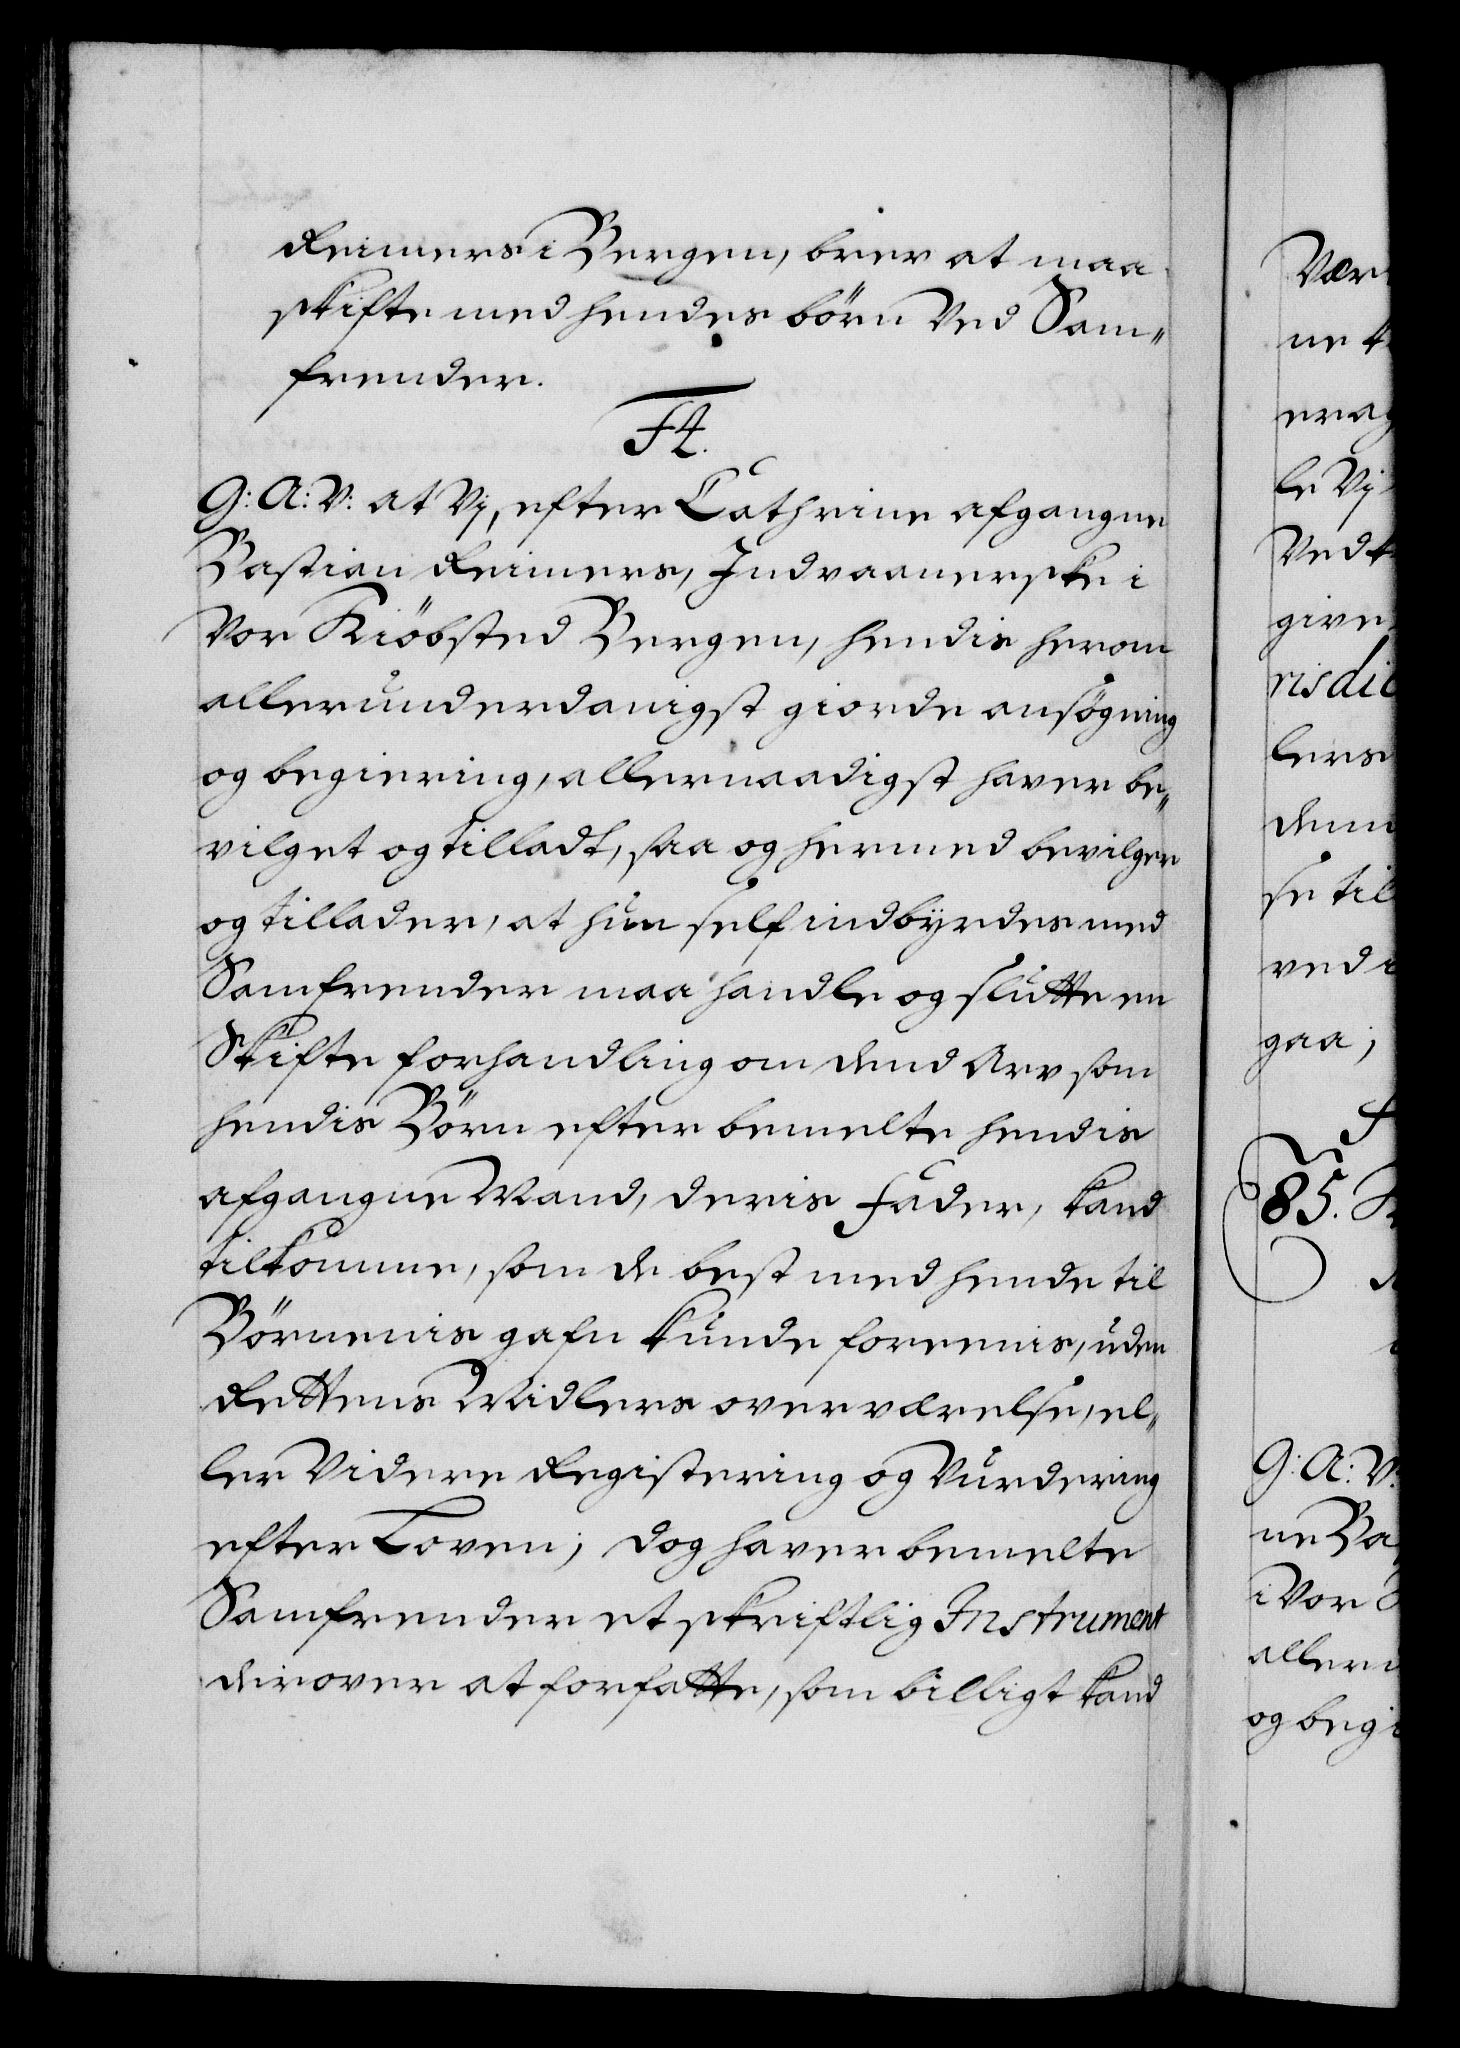 Reimers i Bergen, brev at maa
skifte med hendes börn Ved Sam„
frender.
F4.
G: A: V: at Vj, efter Cathrine afgangne
Bastian Reimers, Indvaanerske i
Vor Kiöbsted Bergen, hendis herom
allerunderdanigst giorde ansögning
og begiering, allernaadigst haver be„
vilget og tilladt, saa og hermed bevilger
og tillader, at hun self indbyrdes med
Samfrender maa handle og slutte en
Skifte forhandling om dend Arv som
hendis Börn efter bemelte hendis
afgangne Mand, deris Fader, kand
tilkomme, som de best med hende til
Börnenis gafn kunde foreenis, uden
Rettens Midlers overværelse, el„
ler Videre Registering og Vurdering
efter Loven; dog haver bemelte
Samfrender et skriftlig Instrument
derover at forfatte, som billigt kand
Vær
ne
erag
le Vj
Ved
give
risdic
lers
denn
se til
ved
gaa;
F
85. 
G: A: V:
ne Ba
i Vor
aller
og begi